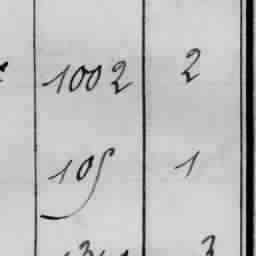 1002 2
105 1